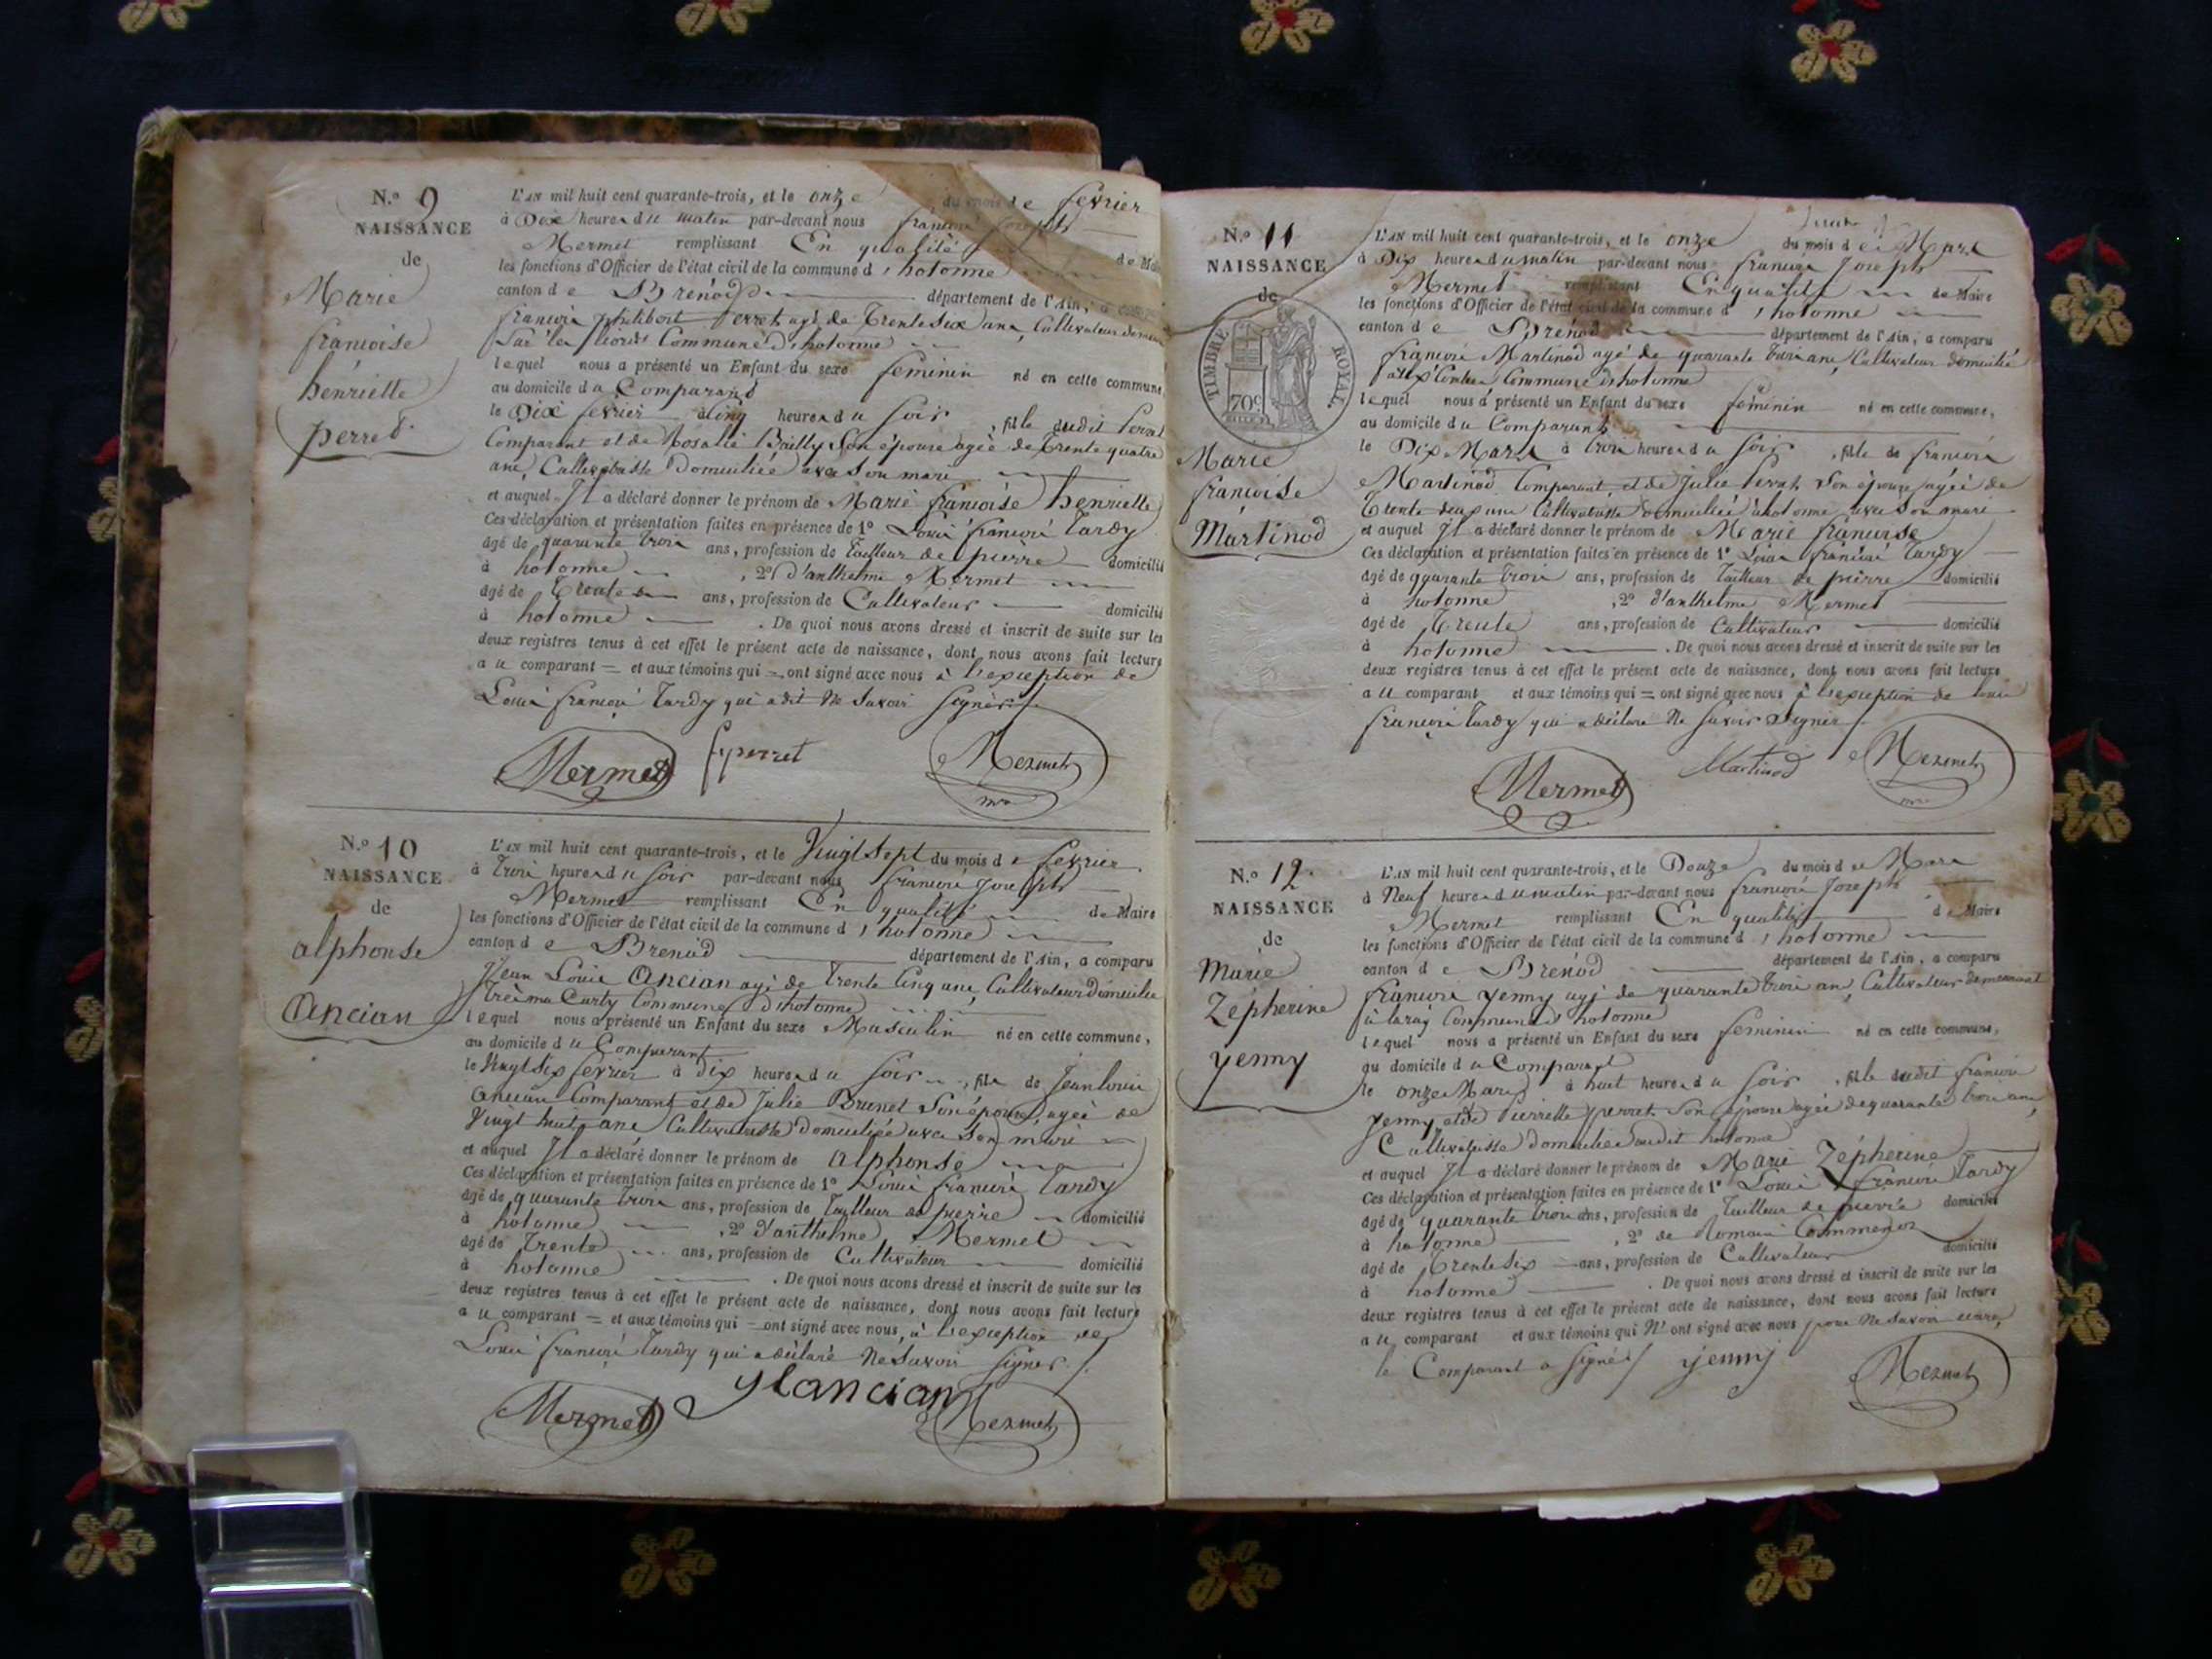 N.º 9
NAISSANCE
de
Marie
françoise
henriette
perret
L'AN mil huit cent quarante-trois, et le onze du mois de fevrier
à Dix heures du matin par-devant nous françois joseph
Mermet remplissant En qualité de Maire
les fonctions d'Officier de l'état civil de la commune d'hotonne
canton de Brénod département de l'Ain, a comparu
françois philibert perret agé de Trente Six ans, Cultivateur
Sur les Commune d'hotonne
lequel nous a présenté un Enfant du sexe feminin né en cette commune,
au domicile du Comparand
le Dix fevrier à Cinq heures du Soir, fille dudit Perret
Comparant et de Rosalie Bailly Son épouse agée de Trente quatre
ans, Cultivatrice Domiciliée avec Son mari
et auquel Il a déclaré donner le prénom de Marie françoise henriette
Ces déclaration et présentation faites en présence de 1º Louis françois Tardy
âgé de quarante trois ans, profession de Tailleur de pierre domicilié
à hotonne, 2º d'anthelme Mermet
âgé de Trente ans, profession de Cultivateur domicilié
à hotonne. De quoi nous avons dressé et inscrit de suite sur les
deux registres tenus à cet effet le présent acte de naissance, dont nous avons fait lecture
au comparant = et aux témoins qui = ont signé avec nous à l'exception de
Louis françois Tardy qui a dit Ne Savoir Signer ./.
Mermet fperret Mermet
mre
N.º 10
NAISSANCE
de
alphonse
Ancian
L'AN mil huit cent quarante-trois, et le Vingt Sept du mois de fevrier
à Trois heures du Soir par-devant nous françois joseph
Mermet remplissant En qualité de Maire
les fonctions d'Officier de l'état civil de la commune d'hotonne
canton de Brenod département de l'Ain, a comparu
Jean Louis Ancian agé de Trente Cinq ans, Cultivateur Domicilié
Commune d'hotonne
lequel nous a présenté un Enfant du sexe Masculin né en cette commune,
au domicile du Comparant
le Vingt Six fevrier à dix heures du Soir, fils de Jean louis
Ancian Comparant et de Julie Brunet Son épouse agée de
Vingt huit ans Cultivatrice Domiciliée avec Son mari
et auquel Il a déclaré donner le prénom de alphonse
Ces déclaration et présentation faites en présence de 1º Louis françois Tardy
âgé de quarante trois ans, profession de Tailleur de pierre domicilié
à hotonne, 2º d'anthelme Mermet
âgé de Trente ans, profession de Cultivateur domicilié
à hotonne. De quoi nous avons dressé et inscrit de suite sur les
deux registres tenus à cet effet le présent acte de naissance, dont nous avons fait lecture
au comparant = et aux témoins qui = ont signé avec nous, à l'exception de
Louis françois Tardy qui a déclaré Ne Savoir Signer ./.
Mermet jlancian Mermet
N.º 11
NAISSANCE
de
TIMBRE ROYAL
70c
Marie
françoise
Martinod
L'AN mil huit cent quarante-trois, et le onze du mois de Mars
à Dix heures du matin par-devant nous françois Joseph
Mermet remplissant En qualité de Maire
les fonctions d'Officier de l'état civil de la commune d'hotonne
canton de Brénod département de l'Ain, a comparu
françois Martinod agé de quarante trois ans, Cultivateur domicilié
Commune d'hotonne
lequel nous a présenté un Enfant du sexe féminin né en cette commune,
au domicile du Comparant
le Dix Mars à trois heures du Soir, fille de françois
Martinod Comparant, et de Julie Perret Son épouse agée de
Trente deux ans Cultivatrice Domiciliée à hotonne avec Son mari
et auquel Il a déclaré donner le prénom de Marie françoise
Ces déclaration et présentation faites en présence de 1º Louis françois Tardy
âgé de quarante trois ans, profession de Tailleur de pierre domicilié
à hotonne, 2º d'anthelme Mermet
âgé de Trente ans, profession de Cultivateur domicilié
à hotonne. De quoi nous avons dressé et inscrit de suite sur les
deux registres tenus à cet effet le présent acte de naissance, dont nous avons fait lecture
au comparant et aux témoins qui = ont signé avec nous à l'exception de louis
françois Tardy qui a déclaré Ne Savoir Signer ./.
Mermet Martinod Mermet
mre
N.º 12
NAISSANCE
de
Marie
Zépherine
yenny
L'AN mil huit cent quarante-trois, et le Douze du mois de Mars
à Neuf heures du matin par-devant nous françois Joseph
Mermet remplissant En qualité de Maire
les fonctions d'Officier de l'état civil de la commune d'hotonne
canton de Brénod département de l'Ain, a comparu
françois yenny agé de quarante trois ans, Cultivateur demeurant
à Commune d'hotonne
lequel nous a présenté un Enfant du sexe feminin né en cette commune,
au domicile du Comparant
le onze Mars à huit heures du Soir, fille dudit françois
yenny et de Pierrette perret Son épouse agée de quarante trois ans,
Cultivatrice Domiciliée audit hotonne
et auquel Il a déclaré donner le prénom de Marie Zépherine
Ces déclaration et présentation faites en présence de 1º Louis françois Tardy
âgé de quarante trois ans, profession de Tailleur de pierre domicilié
à hotonne, 2º de Romain
âgé de Trente Six ans, profession de Cultivateur domicilié
à hotonne. De quoi nous avons dressé et inscrit de suite sur les
deux registres tenus à cet effet le présent acte de naissance, dont nous avons fait lecture
au comparant et aux témoins qui N' ont signé avec nous pour Ne Savoir
le Comparant a Signé ./. yenny Mermet